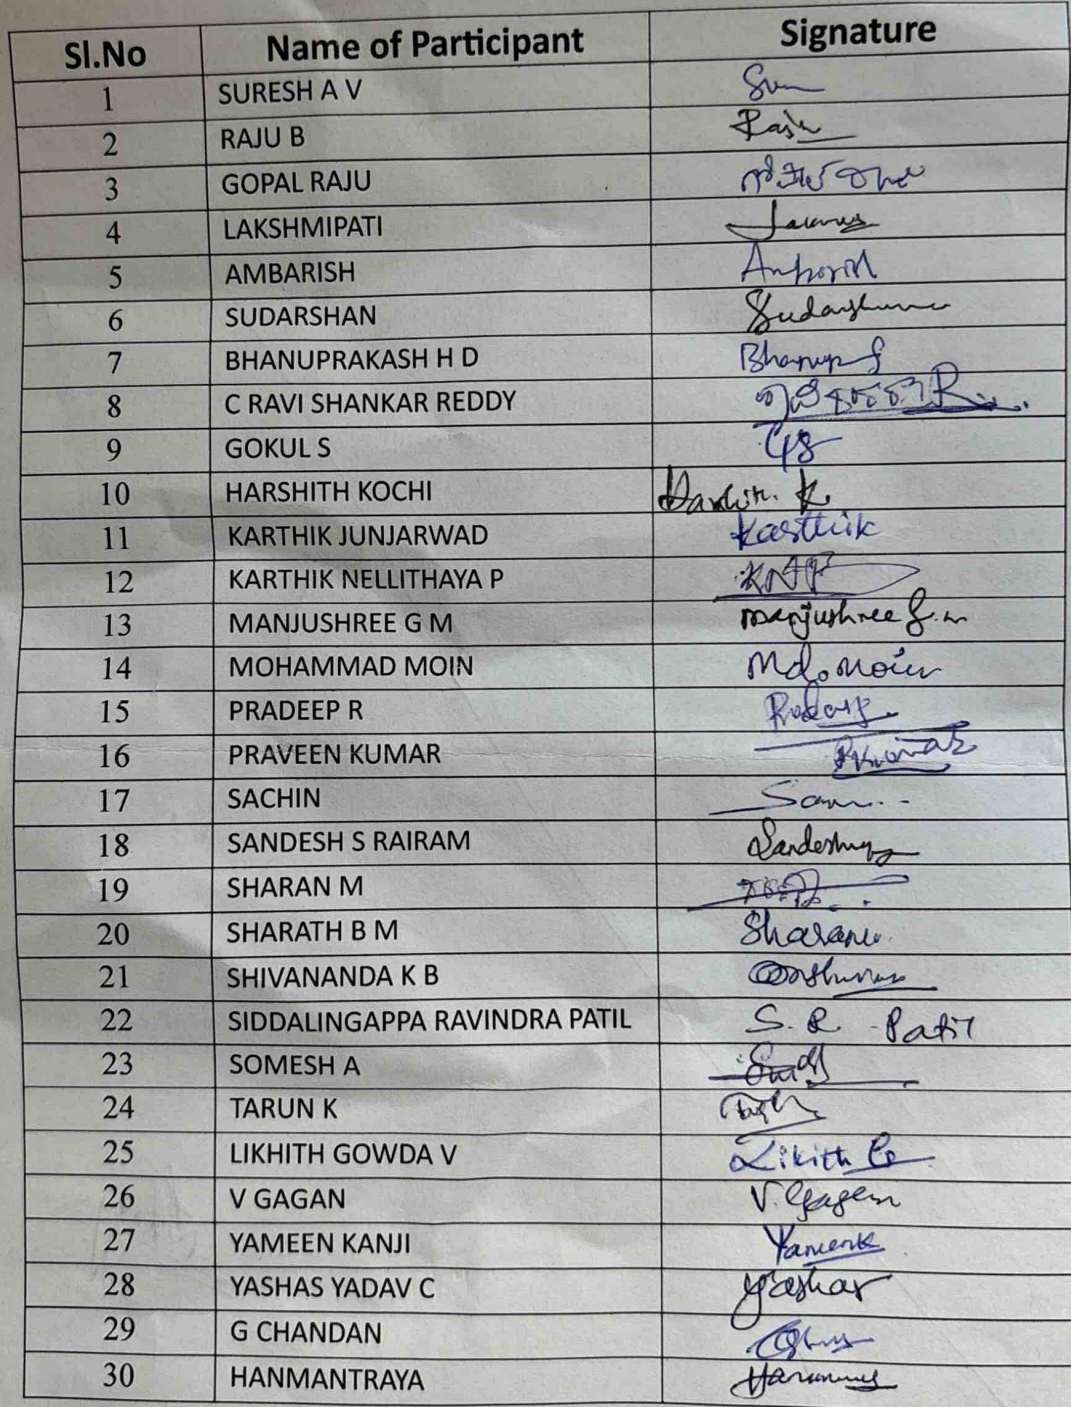 Sl.No Name of Participant Signature
1 SURESH A V
2 RAJU B Raju
3 GOPAL RAJU
4 LAKSHMIPATI
5 AMBARISH
6 SUDARSHAN
7 BHANUPRAKASH H D
8 C RAVI SHANKAR REDDY
9 GOKUL S GS
10 HARSHITH KOCHI K
11 KARTHIK JUNJARWAD Karthik
12 KARTHIK NELLITHAYA P KNP
13 MANJUSHREE G M Manjushree G.m
14 MOHAMMAD MOIN Md. Moin
15 PRADEEP R
16 PRAVEEN KUMAR PKumar
17 SACHIN
18 SANDESH S RAIRAM
19 SHARAN M
20 SHARATH B M
21 SHIVANANDA K B
22 SIDDALINGAPPA RAVINDRA PATIL S. R. Patil
23 SOMESH A
24 TARUN K
25 LIKHITH GOWDA V Likith G
26 V GAGAN V. Gagan
27 YAMEEN KANJI Yameenk
28 YASHAS YADAV C Yashas
29 G CHANDAN
30 HANMANTRAYA